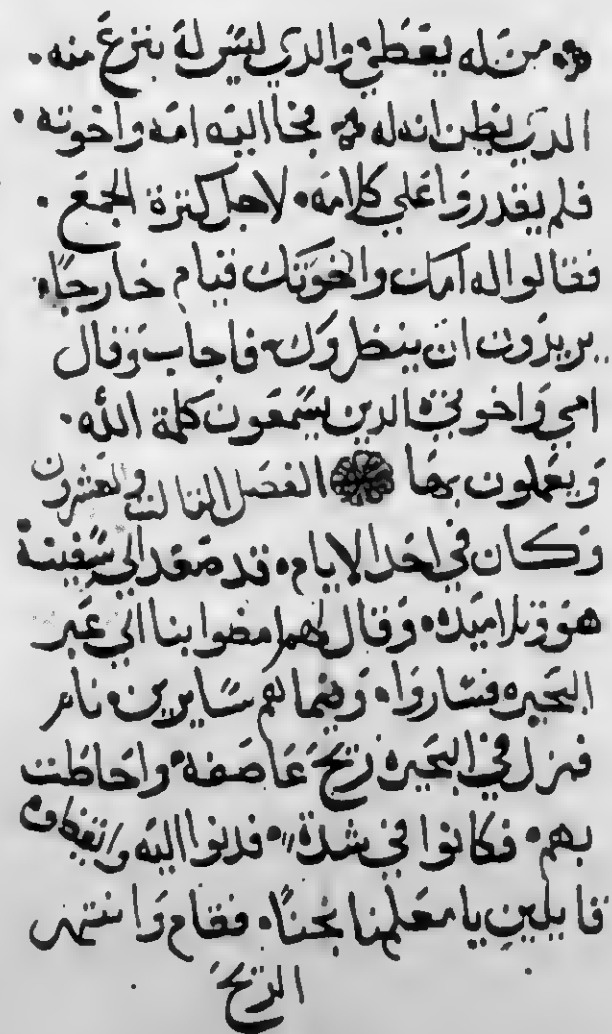 من له يعطي والذي ليس له ينزع منه
الذي يظن انه له فجا اليه امه واخوته
فلم يقدروا علي كلامه لاجل كثرة الجمع
فقالوا له امك واخوتك قيام خارجا
يريدون ان ينظروك فاجاب وقال
امي واخوتي الذين يسمعون كلمة الله
ويعملون بها الفصل الثالث والعشرون
وكان في احد الايام قد صعد الي سفينة
هو وتلاميذه وقال لهم امضوا بنا الي عبر
البحيره فساروا وفيما هم سايرين نام
فنزل في البحيره ريح عاصفه واحاطت
بهم فكانوا في شدة فدنوا اليه وايقظوه
قايلين يا معلمنا نجنا فقام وانتهر
الريح